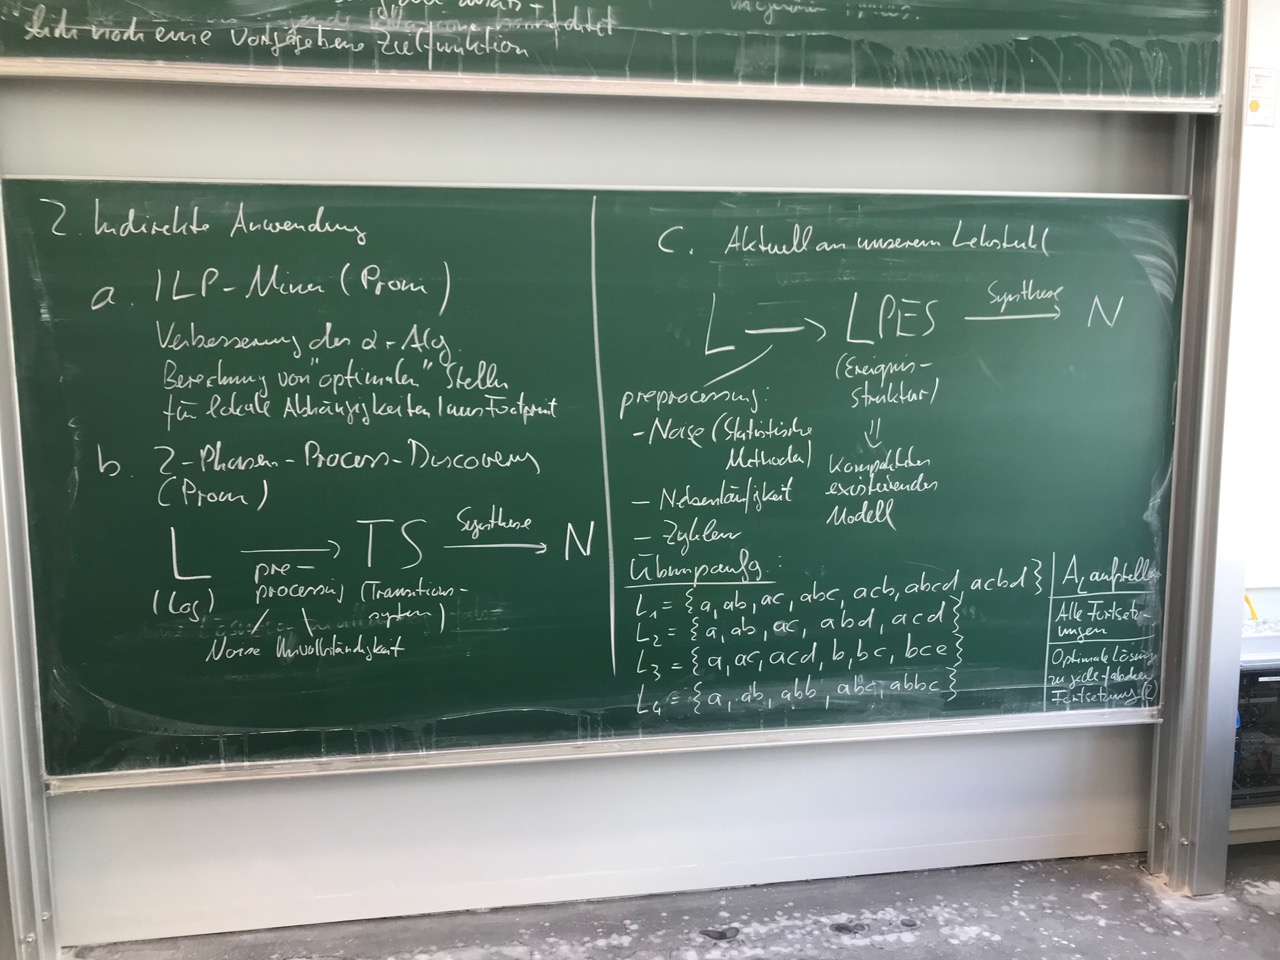 sich noch eine vorgegebene Zielfunktion
2. Indirekte Anwendung
a. ILP-Miner (Prom)
Verbesserung des α-Alg.
Berechnung von "optimalen" Stellen
für lokale Abhängigkeiten aus Footprint
b. 2-Phasen-Process-Discovery
(Prom)
L → TS Synthese → N
(Log) pre-
processing (Transitions-
system)
Noise Unvollständigkeit
C. Aktuell an unserem Lehrstuhl
L → LPES Synthese → N
(Ereignis-
struktur)
preprocessing:
- Noise (Statistische
Methoden)
- Nebenläufigkeit
- Zyklen
⇓
Kompaktes
existierendes
Modell
Übungsaufg.:
L₁ = {a, ab, ac, abc, acb, abcd, acbd}
L₂ = {a, ab, ac, abd, acd}
L₃ = {a, ac, acd, b, bc, bce}
L₄ = {a, ab, abb, abc, abbc}
A_L aufstellen
Alle Fortsetz-
ungen
Optimale Lösung
zu jeder falschen
Fortsetzung (2)